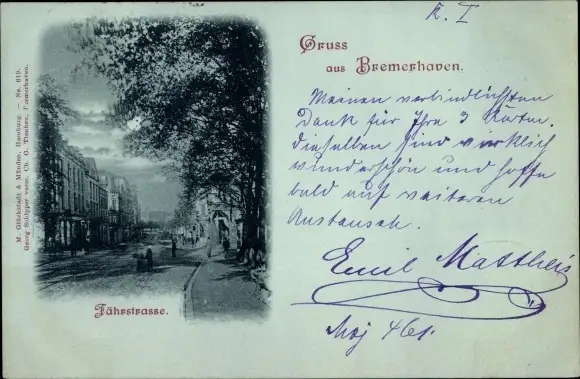 K. I
Gruss
aus Bremerhaven.
Meinen verbindlichsten
Dank für Ihre 3 Karten.
dieselben sind wirklich
wunderschön und hoffe
bald auf weiteren
Austausch.
Emil Mattheis
Fährstrasse.
M. Glückstadt & Münden, Hamburg. — No. 619.
Georg Schipper vorm. Ch. G. Tienken, Bremerhaven.